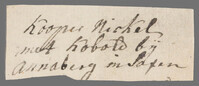 Kooper Nickel
met Kobold by
Annaberg in Saxen